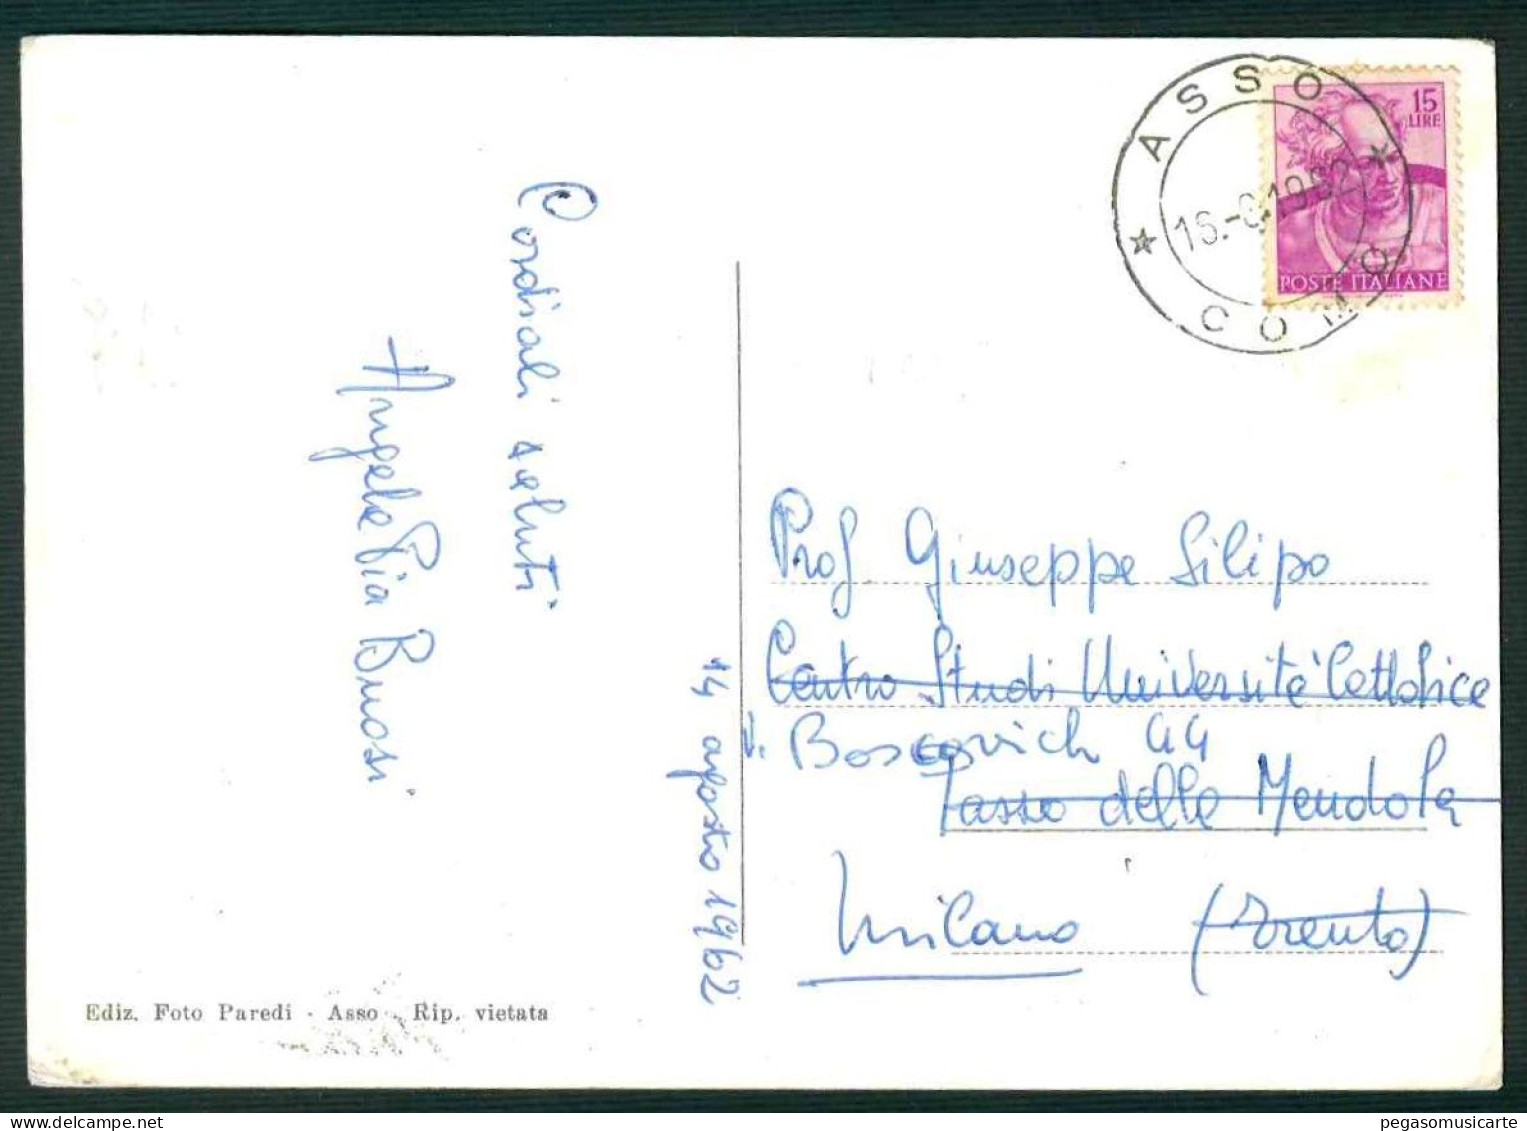 Cordiali saluti
Angela Pia Buosi
14 agosto 1962
Ediz. Foto Paredi - Asso - Rip. vietata
ASSO
COMO
15 LIRE
POSTE ITALIANE
Prof Giuseppe Filipo
Centro Studi Università Cattolica
V. Boscovich 44
Passo della Mendola
Milano (Trento)
pegasomusicarte